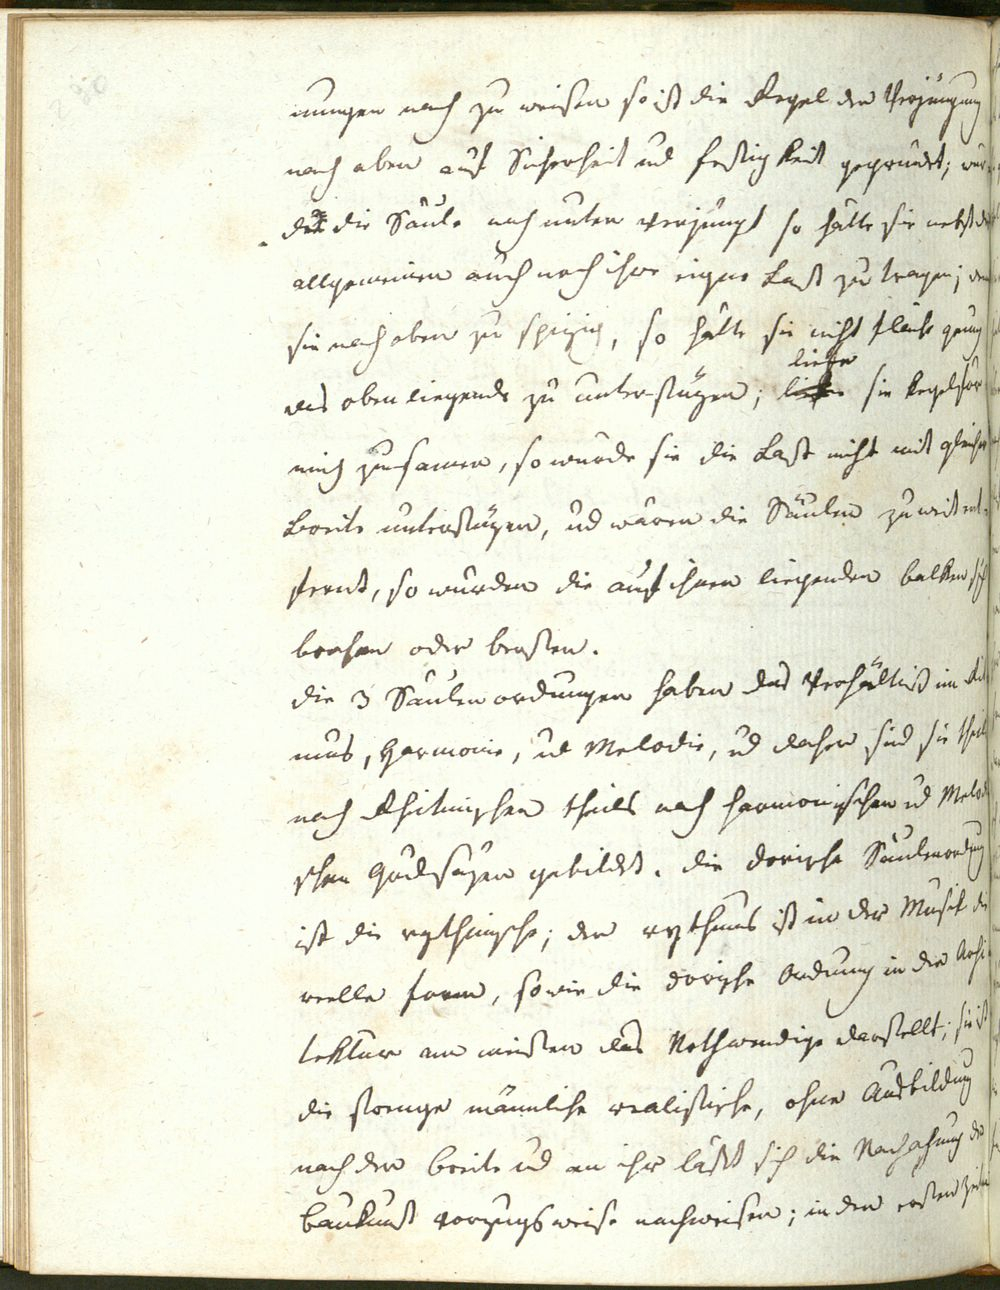 nungen nach zu weisen so ist die Regel der Verjüngung
nach oben auf Sicherheit und festigkeit gegründet; wür
de die Säule nach unten verjüngt so hätte sie nebst der
allgemeinen auch noch ihre eigne Last zu tragen;
sie nach oben zu spizig, so hätte sie nicht fläche genug
das obenliegende zu unterstüzen; liefe sie kegelför
mig zusamen, so würde sie die Last nicht mit gleicher
breite unterstüzen, ud wären die Säulen zu weit ent
fernt, so würden die auf ihnen liegenden balken sich
brechen oder bersten.
die 3 Säulenordnungen haben das Verhältniß im Rit
mus, Harmonie, ud Melodie, ud daher sind sie theils
nach Rhitmischen theils nach harmonischen ud Melodi
schen Grudsäzen gebildet. die dorische Säulenordnung
ist die rythmische; der rythmus ist in der Musik die
reelle form, sowie die dorische Ordnung in der Archi
tektur am meisten das Nothwendige darstellt; sie ist
die strenge männliche realistische, ohne Ausbildung
nach der breite ud an ihr läßt sich die Nachahmung der
baukunst vorzugsweise nachweisen; in den ersten Zeiten